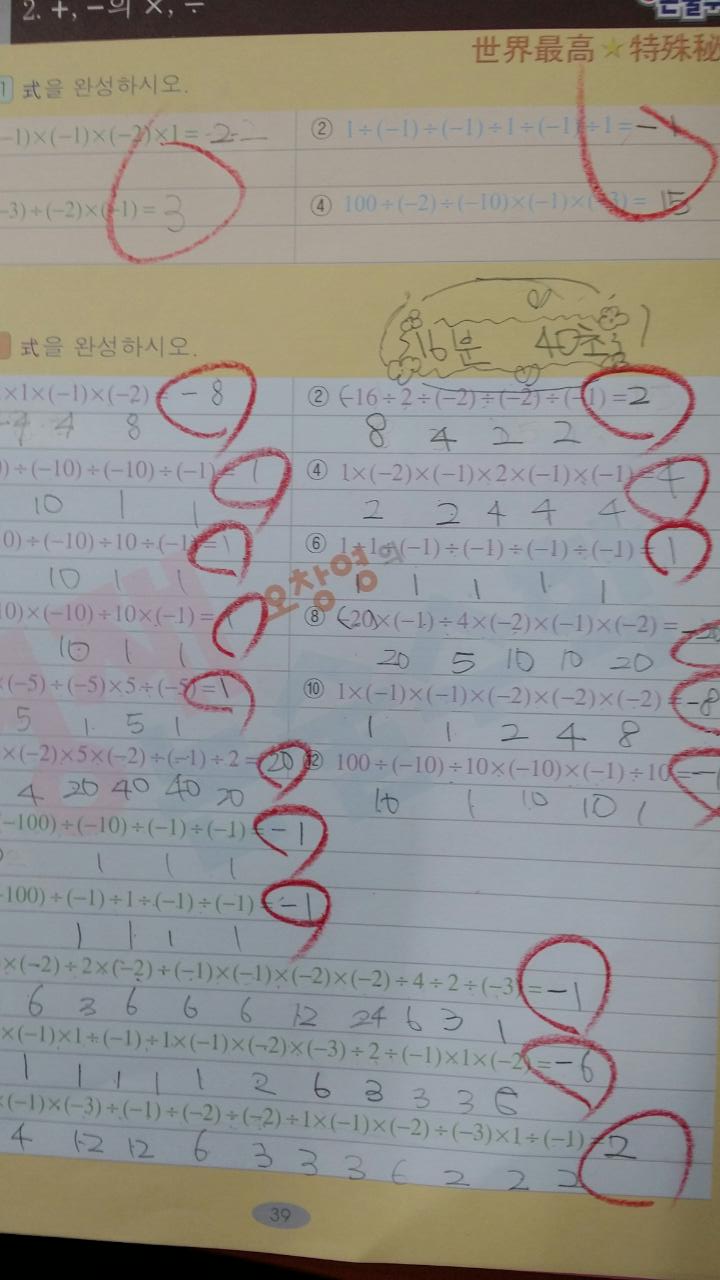 2. +, −의 ×, ÷
世界最高★特殊秘
1 式을 완성하시오.
−1)×(−1)×(−2)×1= -2
② 1÷(−1)÷(−1)÷1÷(−1)÷1= -1
−3)÷(−2)×(−1)= 3
④ 100÷(−2)÷(−10)×(−1)×(−3)= 15
式을 완성하시오.
16분 40초
×1×(−1)×(−2) = -8
② (−16÷2÷(−2)÷(−2)÷(−1)=2
4 8
8 4 2 2
)÷(−10)÷(−10)÷(−1)= 1
④ 1×(−2)×(−1)×2×(−1)×(−1)= 4
10 1 1
2 2 4 4 4
0)÷(−10)÷10÷(−1)=1
⑥ 1÷1÷(−1)÷(−1)÷(−1)÷(−1)= 1
10 1 1
1 1 1 1 1
오창영의
10)×(−10)÷10×(−1)= 1
⑧ (−20)×(−1)÷4×(−2)×(−1)×(−2)=
10 1 1
20 5 10 10 20
×(−5)÷(−5)×5÷(−5)=1
⑩ 1×(−1)×(−1)×(−2)×(−2)×(−2)= -8
5 1 5 1
1 1 2 4 8
×(−2)×5×(−2)÷(−1)÷2= 20
⑫ 100÷(−10)÷10×(−10)×(−1)÷10= -1
4 20 40 40 20
10 1 10 10 1
−100)÷(−10)÷(−1)÷(−1)= -1
1 1 1
−100)÷(−1)÷1÷(−1)÷(−1)= -1
1 1 1 1
×(−2)÷2×(−2)÷(−1)×(−1)×(−2)×(−2)÷4÷2÷(−3)= -1
6 3 6 6 6 12 24 6 3 1
×(−1)×1÷(−1)÷1×(−1)×(−2)×(−3)÷2÷(−1)×1×(−2)= -6
1 1 1 1 1 2 6 3 3 3 6
×(−1)×(−3)÷(−1)÷(−2)÷(−2)÷1×(−1)×(−2)÷(−3)×1÷(−1)=2
4 12 12 6 3 3 3 6 2 2 2
39